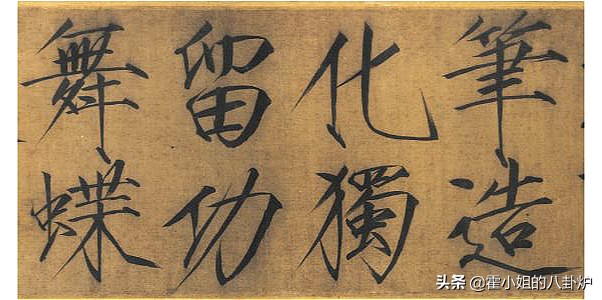 筆造
化獨
留功
舞蝶
头条 @霍小姐的八卦炉